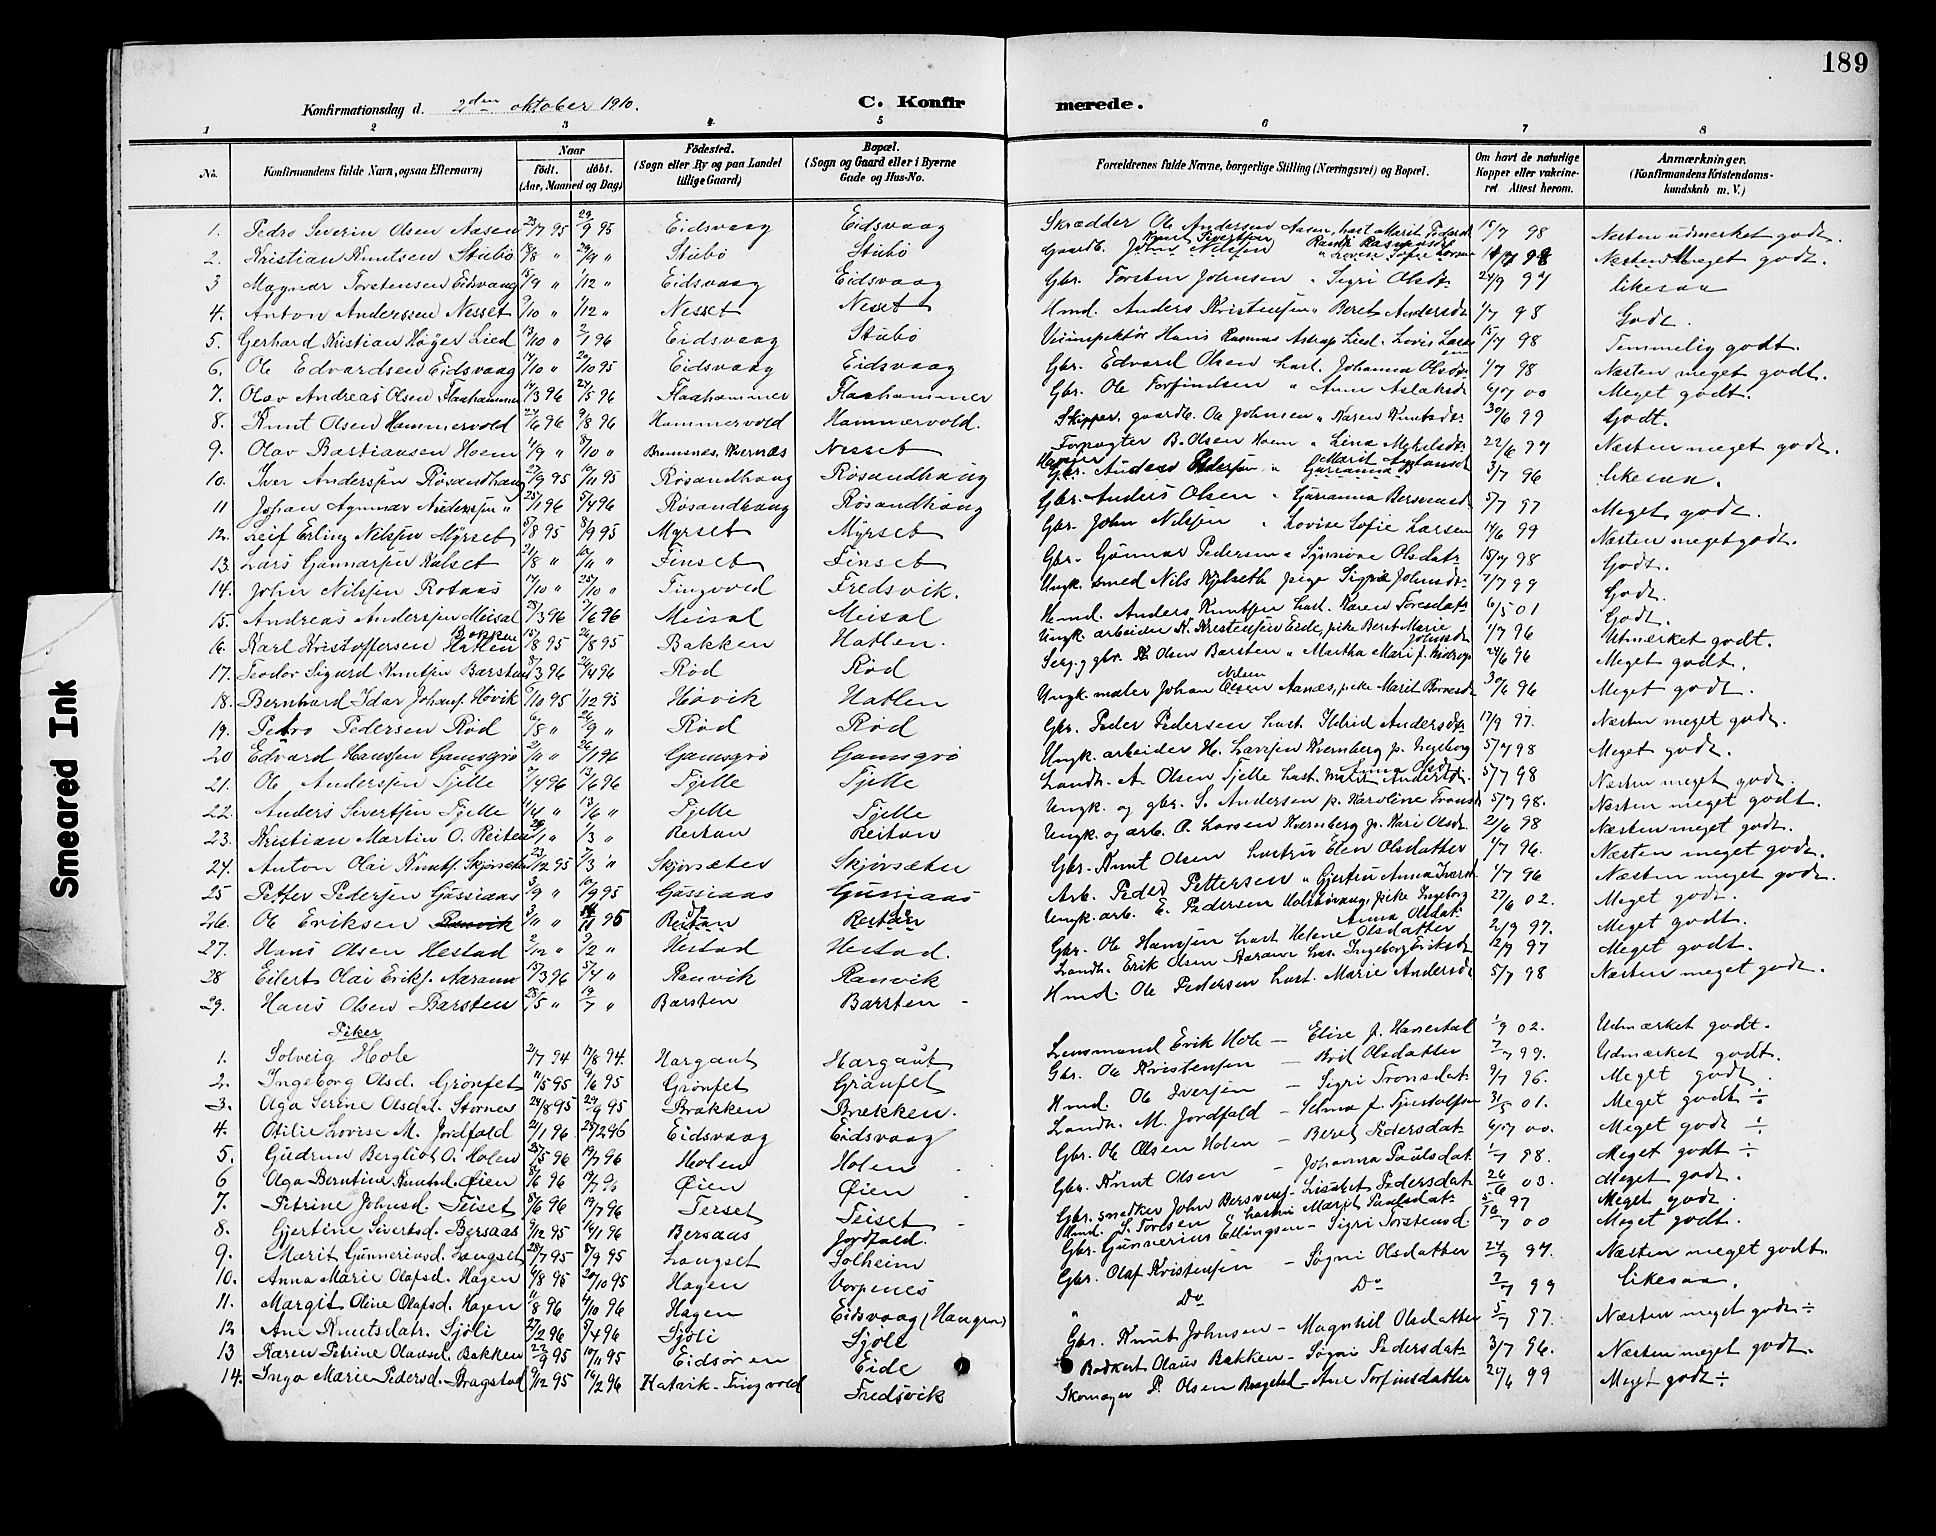 189
Konfirmationsdag d. 2den oktober 1910.
C. Konfirmerede.
1 2 3 4 5 6 7 8
No.
Konfirmandens fulde Navn, ogsaa Efternavn)
Naar
født. døbt.
(Aar, Maaned og Dag)
Fødested.
(Sogn eller By og paa Landet tillige Gaard)
Bopæl.
(Sogn og Gaard eller i Byerne Gade og Hus-No.
Forældrenes fulde Navne, borgerlige Stilling (Næringsvei) og Bopæl.
Om havt de naturlige Kopper eller vakcineret Attest herom.
Anmærkninger.
(Konfirmandens Kristendomskundskab m. V.)
1. Pedro Severin Olsen Aasen 23/7 95 29/9 95 Eidsvaag Eidsvaag Skrædder Ole Andersen Aasen, hust. Marit Pedersd. 15/7 98 Næsten udmerket godt.
2. Kristian Knutsen Stubø 18/8 " 29/9 " Stubø Stubø Gaardb. Knut Sivertsen Randi Rasmusd. John Nilsen " Lovise Sofie Larsen 98 Næsten Meget godt.
3 Magnar Torstensen Eidsvaag 15/9 " 1/12 " Eidsvaag Eidsvaag Gbr. Torsten Johnsen " Sigri Olsd. 24/9 97 likesaa
4. Anton Anderssen Nesset 9/10 " 1/12 " Nesset Nesset Hmd. Anders Kristensen " Beret Andersdt 1/7 98 Godt.
5. Gerhard Kristian Høyer Lied 13/10 " 2/1 96 Eidsvaag Stubø Veiinspektør Hans Rasmus Astrup Lied. Lovise 15/7 98 Temmelig godt.
6. Ole Edvardsen Eidsvaag 14/10 " 20/10 95 Eidsvaag Eidsvaag Gbr. Edvard Olsen hust. Johanna Olsdt. 1/7 98 Næsten meget godt.
7. Olav Andreas Olsen Flaahammer 14/3 96 24/5 96 Flaahammer Flaahammer Gbr. Ole Torfindsen " Ane Aslaksd. 6/7 00 Meget godt.
8. Knut Olsen Hammervold 24/6 96 9/8 96 Hammervold Hammervold. Skipper. gaardb. Ole Johnsen " Karen Knutsdt. 30/6 99 Godt.
9. Olav Bastiansen Hoem 11/9 " 8/10 " Bremsnes, Kvernæs Nesset Forpagter B. Olsen Hoem " Lina Mekelsdt. 22/6 97 Næsten meget godt.
10. Iver Andersen Røsandhaug 27/9 95 19/11 95 Røsandhaug Røsandhaug Gbr. Anders Pedersen " Marit 3/7 96 likesaa.
11 Johan Agnmar Anderssen " 25/1 96 5/4 96 Røsandhaug Røsandhaug Gbr. Anders Olsen " Gurianna Bersvensd. 5/7 97 Meget godt.
12. Leif Erling Nilssen Myrset 5/8 95 8/9 95 Myrset Myrset Gbr. John Nilsen " Lovise Sofie Larsen 14/6 99 Næsten meget godt.
13. Lars Gunnarsen Kalset 21/8 " 10/11 " Finset Finset Gbr. Gunnar Pedersen " Synnøve Olsdatr. 15/7 98 Godt.
14. John Nilssen Rotaas 17/10 " 25/10 " Tingvold Fredsvik. Ungk. smed Nils Kjelseth pige Sigrid Johnsdt. 7/7 99 Godt.
15. Andreas Andersen Meisal 23/3 96 7/6 96 Meisal Meisal Hmd. Anders Knutsen hust. Karen Toresdatr 6/5 01 Godt.
16. Karl Kristoffersen Bakken Hatlen 15/8 95 26/8 95 Bakken Hatlen. Ungk. arbeider K. Kristensen Eide, pike Beret Marie Johnsdt. 1/7 96 Utmerket godt.
17. Teodor Sigurd Knutsen Barsten 8/3 96 26/4 96 Rød Rød Serg. g gbr. K. Olsen Barsten " Martha Mari f. 24/6 96 Meget godt.
18. Bernhard Idar Johans. Høvik 9/10 95 1/12 95 Høvik Hatlen Ungk. maler Johan Nilsen Aanæs, pike Marit 30/6 96 Meget godt.
19. Pedro Pedersen Rød 6/8 " 26/9 " Rød Rød Gbr. Peder Pedersen hust. Ildrid Andersdt. 17/9 97. Næsten meget godt.
20 Edvard Hanssen Gamsgrø 2/11 " 26/1 96 Gamsgrø Gamsgrø Ungk. arbeider H. Larssen Kvernberg p. Ingeborg Anna Olsdt. 5/7 98 Meget godt.
21. Ole Anderssen Tjelle 7/4 96 13/6 96 Tjelle Tjelle Landh. A. Olsen Tjelle hust. Marit Andersdt. 5/7 98 Næsten meget godt.
22. Anders Sivertsen Tjelle 11/4 " 13/6 " Tjelle Tjelle Ungk. og gbr. S. Andersen p. Karoline Tronsd. 5/7 98. Næsten meget godt.
23. Kristian Martin O. Reiten 20/1 " 1/3 " Reitan Reitan Ungk. og arb. O. Larsen Kvernberg p. Kari Olsdt. 2/6 98 Næsten meget godt.
24. Anton Olai Knuts. Skjørsæter 23/12 95 7/3 " Skjørsæter Skjørsæter Gbr. Knut Olsen hustru Elen Olsdatter 1/7 96. Næsten meget godt.
25 Petter Pedersen Gussiaas 3/9 " 10/9 95 Gussiaas Gussiaas Arb. Peder Pettersen " Gjertru Anna Iversd. 1/7 96 Næsten meget godt.
26. Ole Eriksen Ranvik 3/11 " /11 95 Reitan Reitan Ungk. arb. E. Pedersen pike Ingeborg Anna Olsdat. 27/6 02. Meget godt.
27. Hans Olsen Hestad 2/12 " 9/2 " Hestad Hestad. Gbr. Ole Hansen hust Helene Olsdatter 2/9 97. Meget godt.
28 Eilert Olai Eriks. Aarann 13/3 96 5/4 " Ranvik Ranvik Landh. Erik Olsen Aarann hus. Ingeborg Eriksdt 12/9 97 Meget godt.
29. Hans Olsen Barsten 28/5 " 19/7 " Barsten Barsten - Hmd. Ole Pedersen hust. Marie Andersdt 5/7 98 Næsten meget godt.
Piker
1. Solveig Hole 2/7 94 19/8 94. Hargaut Hargaut Lensmand Erik Hole - Elise f. Hanestal 1/9 02. Udmærket godt.
2. Ingeborg Olsd. Grønset 11/5 95 9/6 95 Grønset Grønset Gbr. Ole Kristensen - Brit Olsdatter 7/7 99. Udmærket godt.
3. Olga Serine Olsdat. Stornes 24/8 95 29/9 95 Brækken Brækken. Hmd. Ole Iversen - Sigri Tronsdat. 9/7 96. Meget godt.
4. Otilie Lovise M. Jordfald 21/1 96 25/2 96 Eidsvaag Eidsvaag Landh. M. Jordfald - Selma f. 31/5 01. Meget godt ÷
5. Gudrun Bergliot O. Holen 23/5 96 19/7 96 Holen Holen Gbr. Ole Olsen Holen - Beret Pedersdat. 6/7 00. Meget godt ÷
6 Olga Berntine Knutsd. Øien 5/6 96 19/7 96 Øien Øien Gbr. Knut Olsen - Johanna Paulsdat. 1/7 98. Meget godt ÷
7. Petrine Johnsd. Teiset 8/6 96 19/7 96 Terset Teiset Gbr. snedker John Bersvens. - Lisabet Pedersdat. 26/6 03. Meget godt.
8. Gjertine Sivertsd. Bersaas 9/12 95 16/1 96 Bersaas Jordfald. Hmd. S. Toresen " hustru Marit Paulsdat. 5/7 97 Meget godt.
9. Marit Gunneriusd. Langset 28/7 95 8/9 95 Langset Solheim Gbr. Gunnerius Ellingsen - Sigri Torstensd. 16/7 00 Meget godt.
10. Anna Marie Olafsd. Hagen 4/8 95 20/10 95 Hagen Vorpenes Gbr. Olaf Kristensen - Søgni Olsdatter 24/9 97. Næsten meget godt.
11. Margit Oline Olafsd. Hagen 11/8 96 4/10 96 Hagen Eidsvaag (Haugen) " Do Do 2/7 99 likesaa.
12 Ane Knutsdatr. Sjøli 27/2 96 5/4 96 Sjøli Sjøli Gbr. Knut Johnsen - Magnhil Olsdatter 5/7 97. Næsten meget godt ÷
13 Karen Petrine Olausd. Bakken 22/9 95 10/11 95 Eidsøren Eide Bødkert Olaus Bakken - Søgni Pedersdat. 3/7 96. Næsten meget godt.
14. Inga Marie Pedersd. Bragstad 9/12 95 16/2 96 Hatvik - Tingvold Fredsvik Skomager P. Olsen Bragstad - Ane Torfinsdatter 20/6 99 Meget godt ÷
Smeared Ink